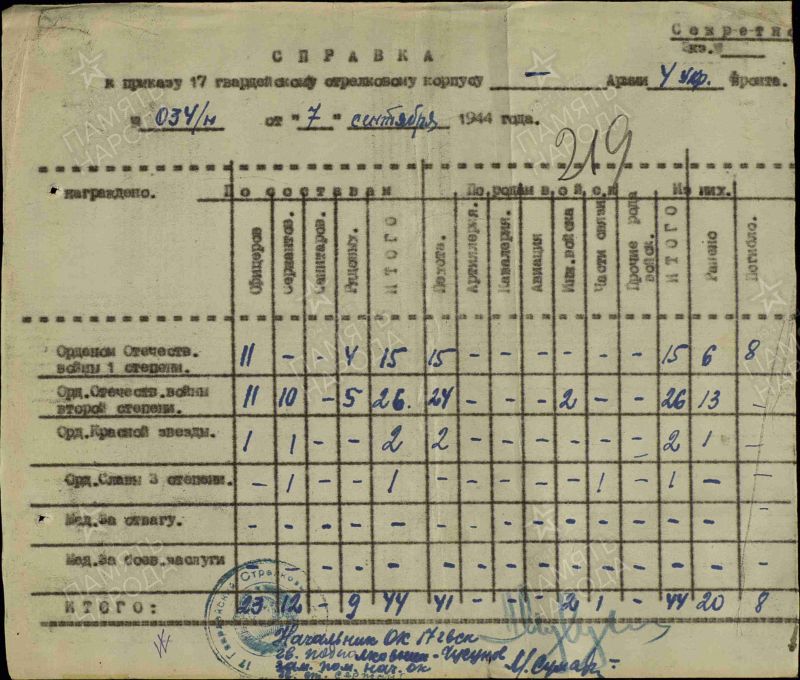 Секретно
Экз.№
СПРАВКА
к приказу 17 гвардейскому стрелковому корпусу — Армии 4 Укр. Фронта.
№ 034/н от "7" сентября 1944 года.
219
награждено. По составам По родам войск Из них.
Офицеров Сержантов. Санитаров. Рядовых. ИТОГО Пехота. Артиллерия. Кавалерия. Авиация Инж.войска Части связи. Прочие рода войск. ИТОГО Ранено Погибло.
Орденом Отечеств. войны 1 степени. 11 - - 4 15 15 - - - - - - 15 6 8
Орд.Отечеств.войны второй степени. 11 10 - 5 26. 24 - - - 2 - - 26 13 -
Орд.Красной звезды. 1 1 - - 2 2 - - - - - - 2 1 -
Орд.Славы 3 степени. - 1 - - 1 - - - - - 1 - 1 - -
Мед.За отвагу. - - - - - - - - - - - - - - -
Мед.За боев.заслуги - - - - - - - - - - - - - - -
ИТОГО: 23 12 - 9 44 41 - - - 2 1 - 44 20 8
Начальник ОК 17 гвск
гв. подполковник - Чусунов
зам. пом. нач. ок
ПАМЯТЬ НАРОДА